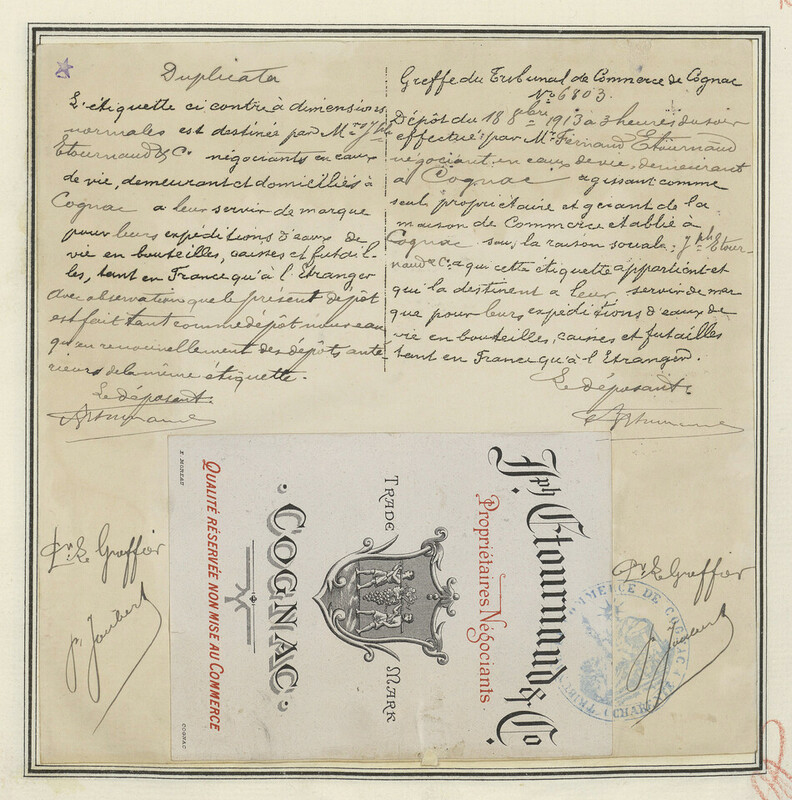 Duplicata
L'étiquette ci contre à dimensions
normales est destinée par Mrs Jph
Etournaud & Co négociants en eaux
de vie, demeurant et domiciliés à
Cognac a leur servir de marque
pour leurs expéditions d'eaux de
vie en bouteilles, caisses et futail-
les, tant en France qu'à l'Etranger
Avec observations que le présent dépôt
est fait tant comme dépôt nouveau
qu'en renouvellement des dépôts anté
rieurs de la même étiquette.
Le déposant.
Greffe du Tribunal de Commerce de Cognac
No 6803.
Dépôt du 18 8bre 1913 a 3 heures du soir
effectué par Mr Fernand Etournaud
négociant en eaux de vie, demeurant
a Cognac agissant comme
seul propriétaire et gérant de la
maison de Commerce etablie à
Cognac sous la raison sociale Jph Etour-
naud & Co a qui cette étiquette appartient et
qui la destinent a leur servir de mar
que pour leurs expéditions d'eaux de
vie en bouteilles, caisses et futailles
tant en France qu'a l'Etranger.
Le déposant.
Pr Le Greffier
P. Joubert
Jph Etournaud & Co
Propriétaires Négociants.
TRADE MARK
COGNAC.
QUALITÉ RÉSERVÉE NON MISE AU COMMERCE
E. MOREAU
COGNAC
Pr Le Greffier
P. Joubert
COMMERCE DE COGNAC